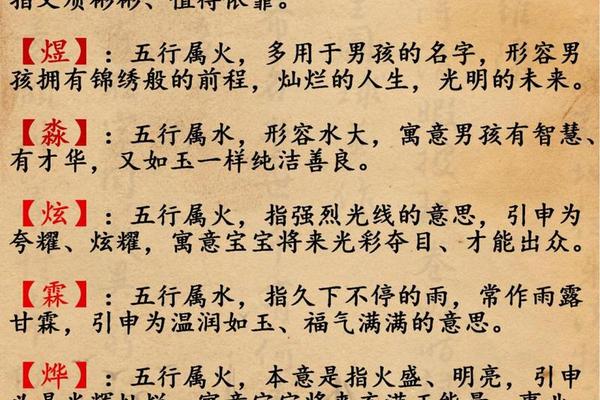 指文质彬彬、值得依靠。
【煜】：五行属火，多用于男孩的名字，形容男
孩拥有锦绣般的前程，灿烂的人生，光明的未来。
【淼】：五行属水，形容水大，寓意男孩有智慧、
有才华，又如玉一样纯洁善良。
【炫】：五行属火，指强烈光线的意思，引申为
夸耀、炫耀，寓意宝宝将来光彩夺目、才能出众。
【霖】：五行属水，指久下不停的雨，常作雨露
甘霖，引申为温润如玉、福气满满的意思。
【烨】：五行属火，本意是指火盛、明亮，引申
是光辉灿烂，寓意宝宝将来充满正能量，事业